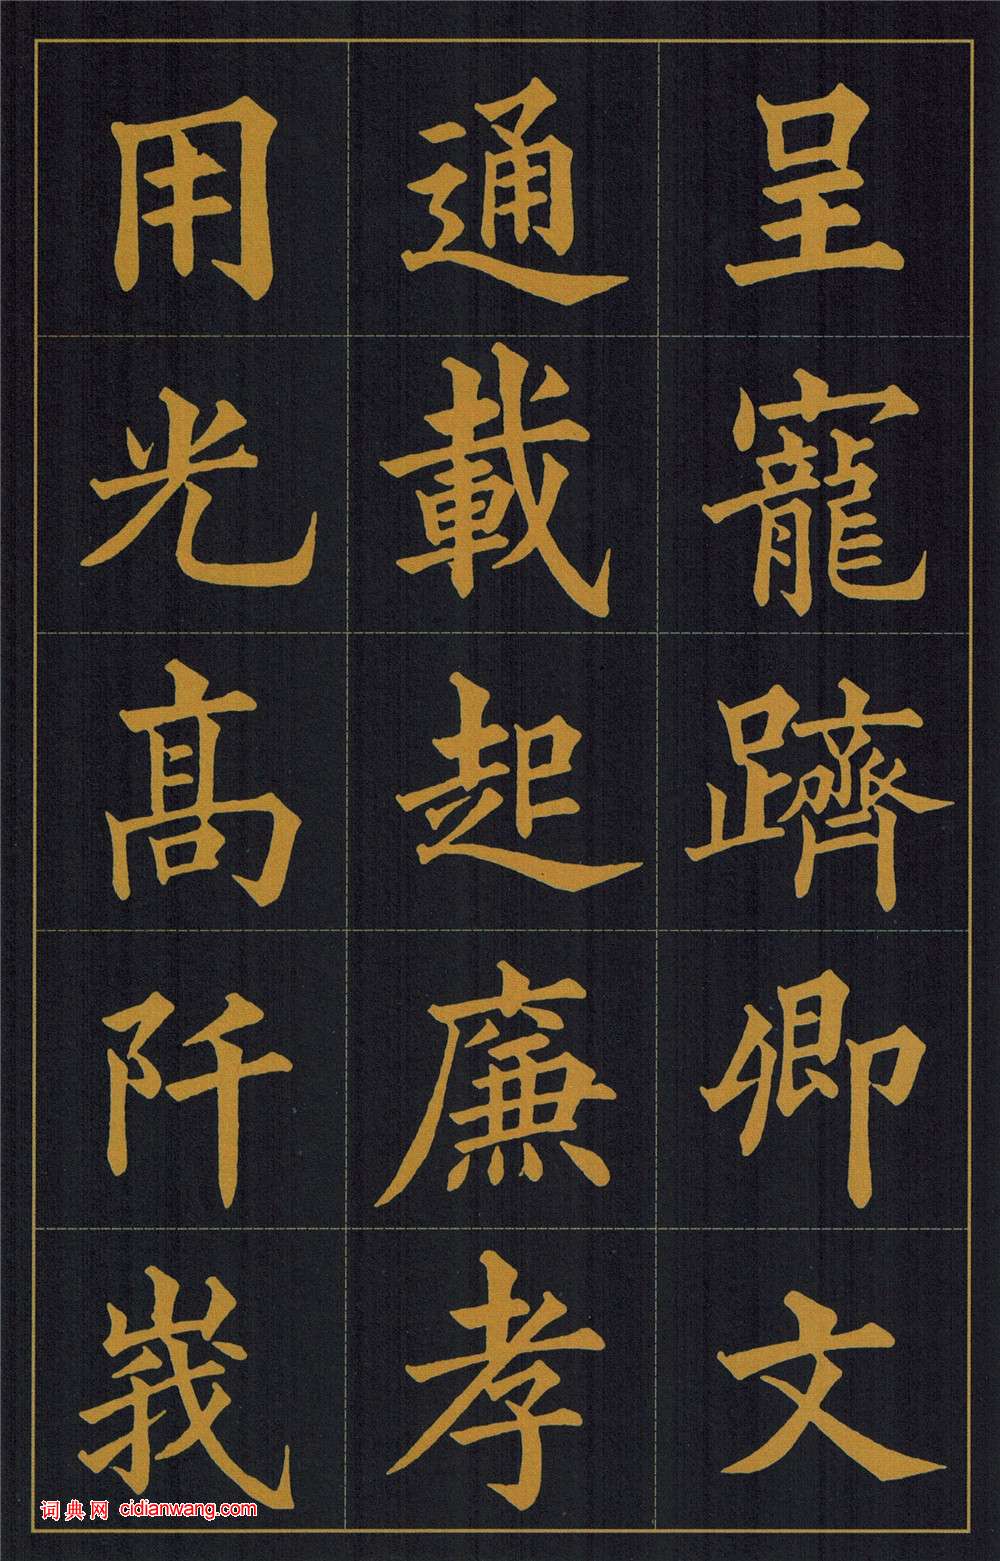 呈寵躋卿文
通載起廉孝
用光高阡峩
词典网 cidianwang.com